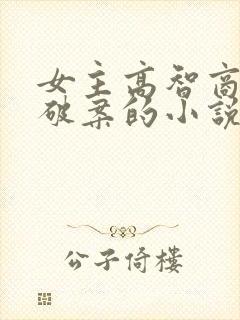 女主高智商
破案的小說
公子倚樓